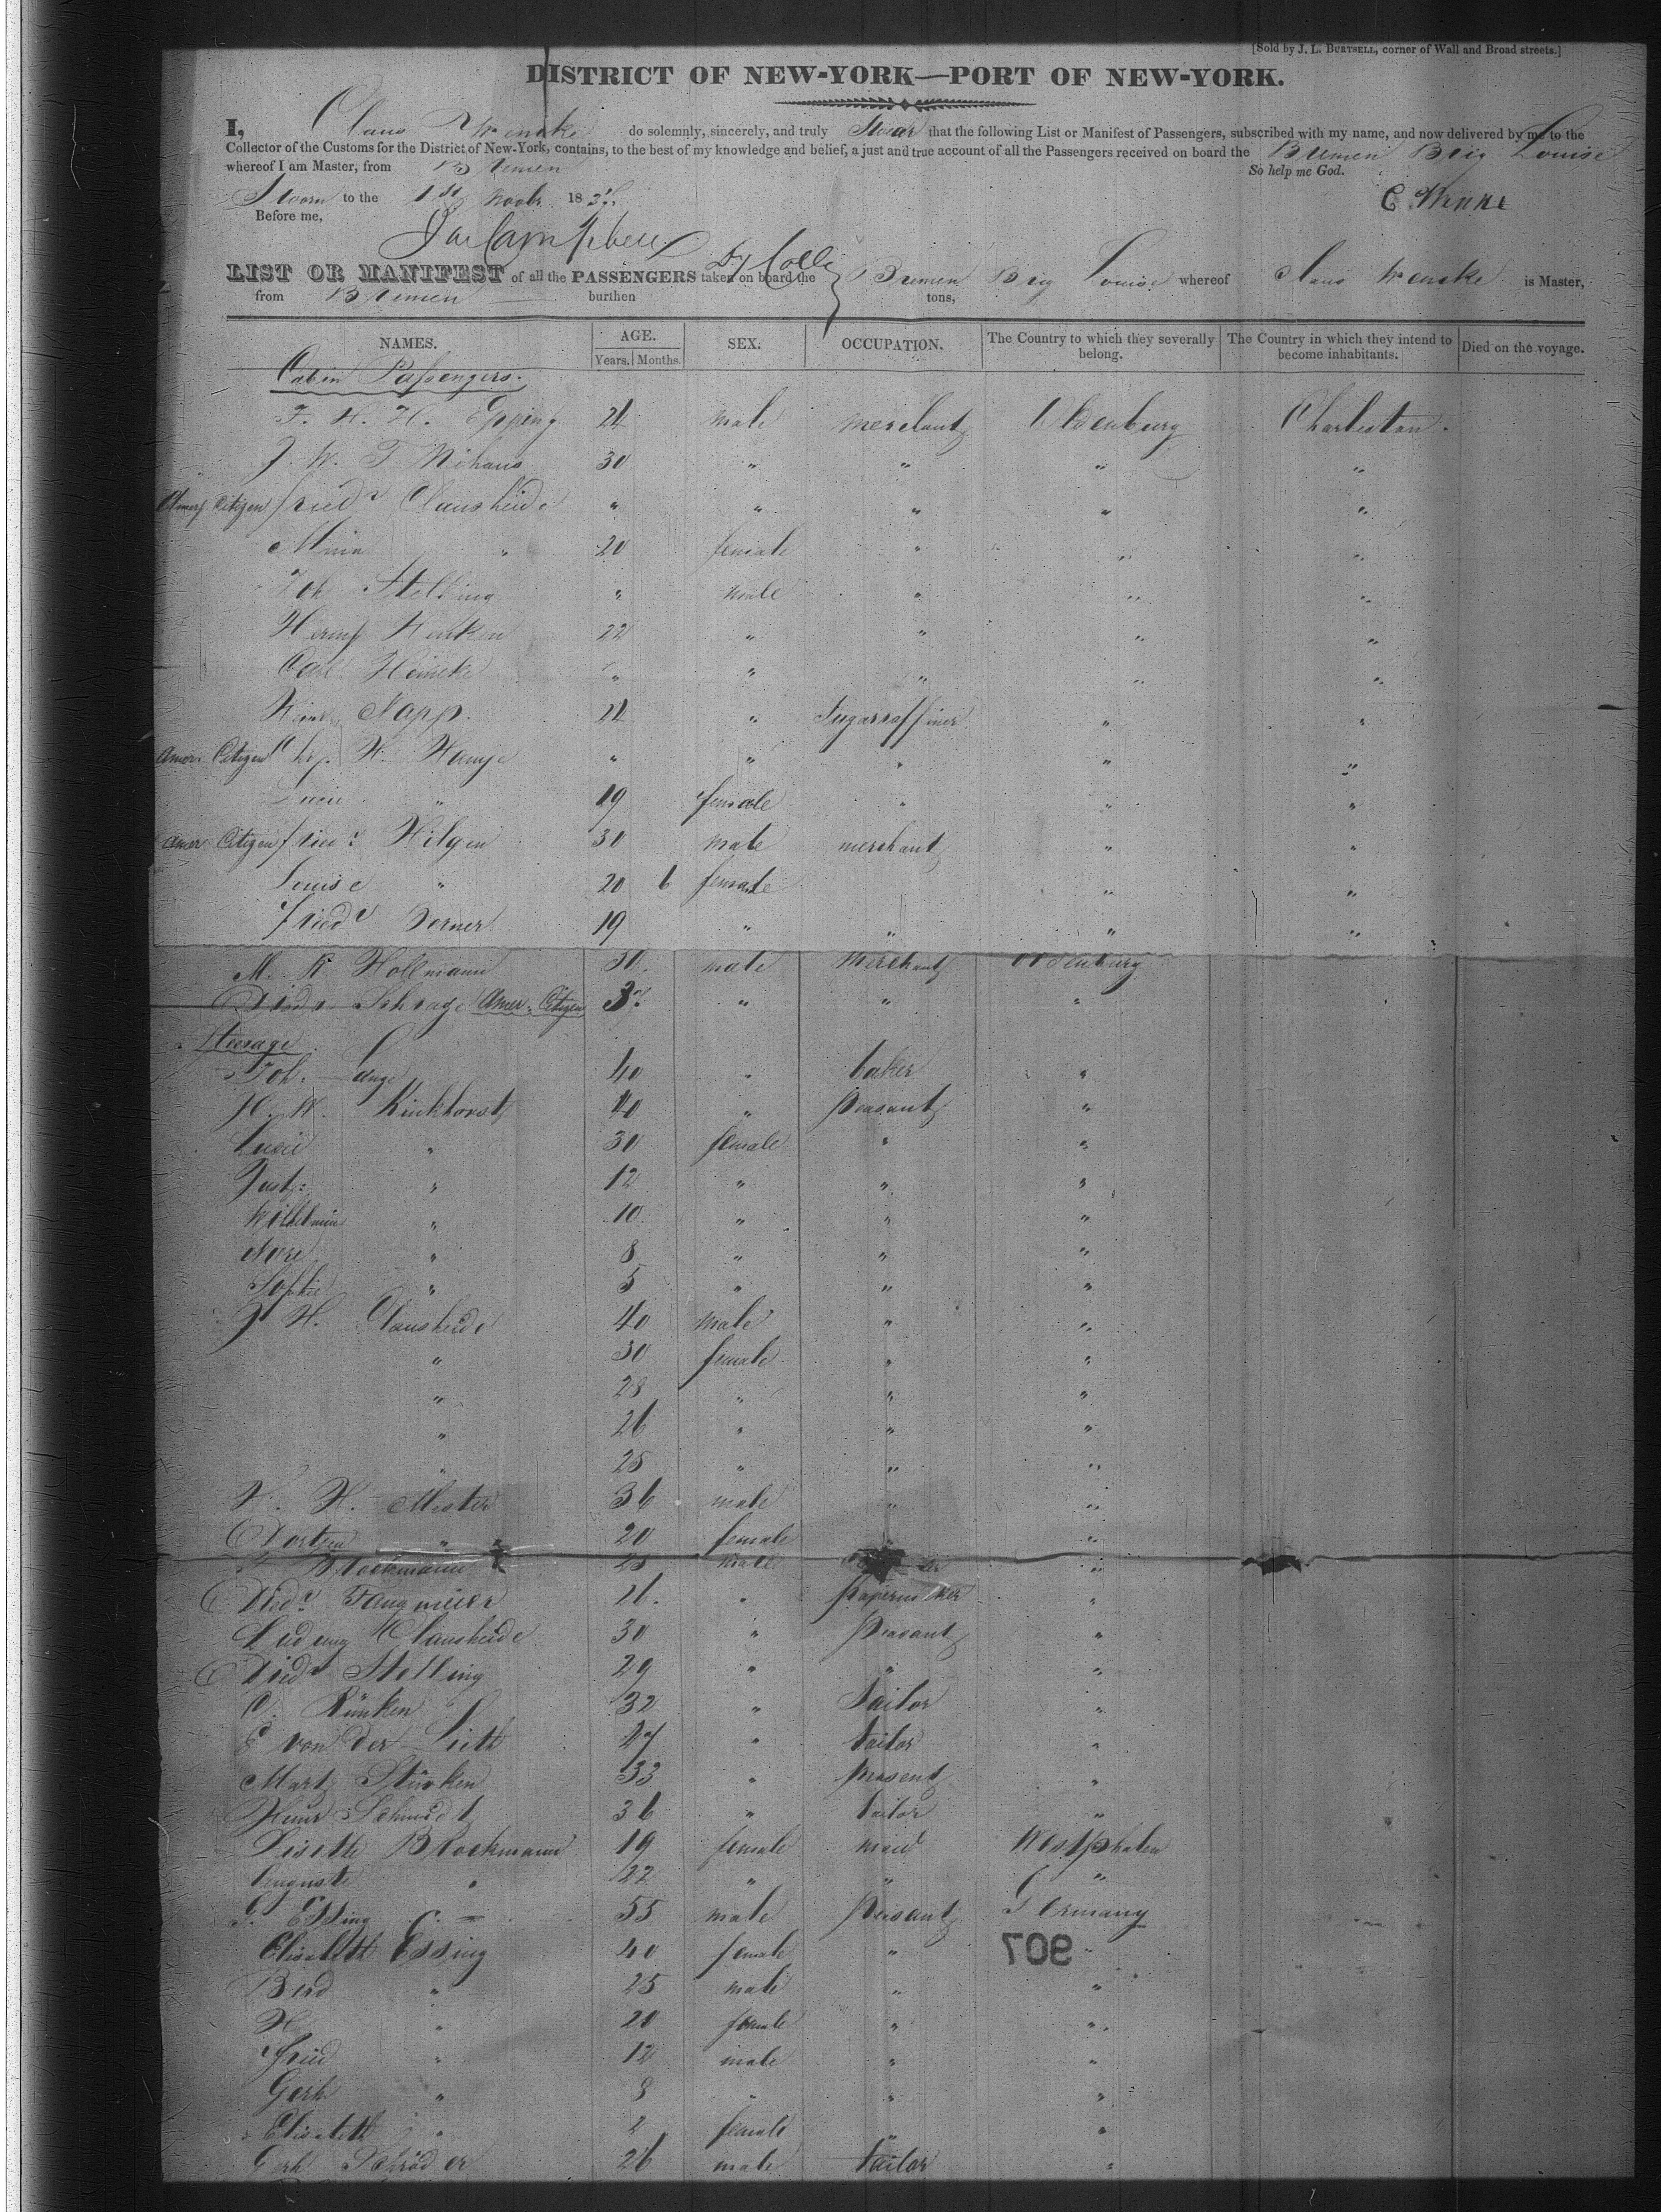 [Sold by J. L. BURTSELL, corner of Wall and Broad streets.]
DISTRICT OF NEW-YORK—PORT OF NEW-YORK.
I, Claus Wenske do solemnly, sincerely, and truly Swear that the following List or Manifest of Passengers, subscribed with my name, and now delivered by me to the
Collector of the Customs for the District of New-York, contains, to the best of my knowledge and belief, a just and true account of all the Passengers received on board the Bremen Brig Louise
whereof I am Master, from Bremen So help me God.
Sworn to the 1st Novbr 1837. C Wenke
Before me,
Jas Campbell Dy Colle
LIST OR MANIFEST of all the PASSENGERS taken on board the Bremen Brig Louise whereof Claus Wenske is Master,
from Bremen burthen tons,
NAMES. AGE. SEX. OCCUPATION. The Country to which they severally belong. The Country in which they intend to become inhabitants. Died on the voyage.
Years. Months.
Cabin Passengers.
F. H. H. Epping 24 male merchant Oldenburg Charlestan.
J. W. T Nihaus 30 " " " "
Amer Citizen fried r Clausheide " " " " "
Mina " 20 female " " "
Joh Stelling " male " " "
Herm Henken 22 " " " "
Carl Heincke " " " " "
Heinr Napp. 24 " Sugarraffiner " "
Amer. Citizen H. Hauge " " " " "
Lucie " 19 female " " "
Amer Citizen fried r Hilgen 30 male merchant " "
Louise " 20 6 female " "
Fried r Borner 19 " " " "
M. K Hollmann 30. male Merchant Oldenburg
Died r Schrage Amer. Citizen 37 " " "
Steerage
Joh: Lange 40 " baker "
H. W. Kinkhorst 40 " peasant "
Lucie " 30 female " "
Just: " 12 " " "
Wilhelmin " 10 " " "
Nore " 8 " " "
Sophie " 5 " " "
J H. Clausheide 40 male " "
" 30 female " "
" 28 " " "
" 26 " " "
" 25 " " "
H. H. Mester 36 male " "
Dortgen " 20 female "
Blockmann 25 male "
Died r Fangmeier 26. " papermaker "
Ludewig Clausheide 30 " peasant "
Died r Stelling 29 " " "
C. Künken 32 " Tailor "
E von der Lieth 27 " tailor "
Mart Stürken 33 " peasent "
Heinr Schmidt 36 " tailor "
Lisette Blockmann 19 female maid Westphalen
Auguste " 22 " " "
G. Essing 55 male peasant Germany
Elisabeth Essing 40 female " "
907
Berd " 25 male " "
H " 20 female " "
Fried " 12 male " "
Gerh " 8 " " "
Elisabeth " 2 female " "
Gerh Schröder 26 male tailor "